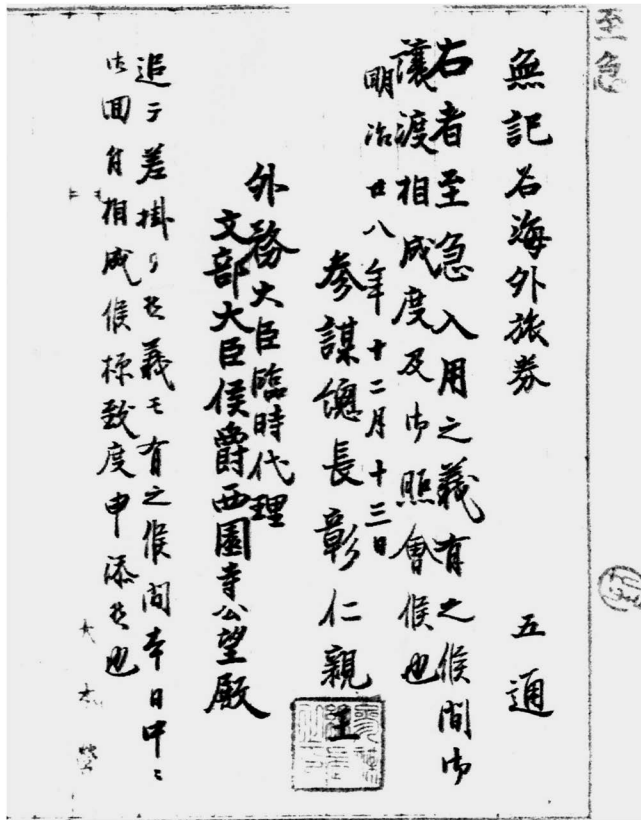 至急
無記名海外旅券 五通
右者至急入用之義有之候間御
讓渡相成度及御照會候也
明治廿八年十二月十三日
參謀總長彰仁親王
外務大臣臨時代理
文部大臣侯爵西園寺公望殿
追テ差掛リ候義モ有之候間本日中ニ
御回付相成候様致度申添候也